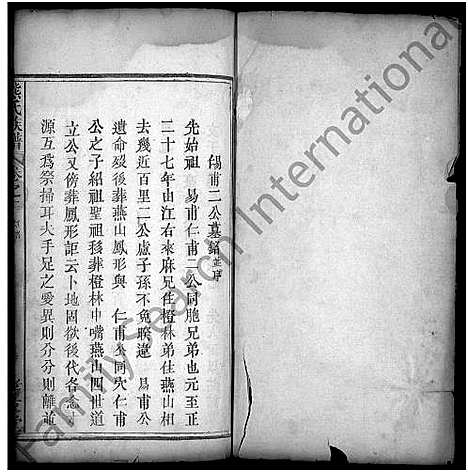 錫甫二公墓銘並序
先始祖 易甫仁甫二公同胞兄弟也元至正
二十七年由江右來麻兄住橙林弟住燕山相
去幾近百里二公慮子孫不免睽違 易甫公
遺命歿後葬燕山鳳形與 仁甫公同穴仁甫
公之子紹祖聖祖移葬橙林中嘴燕山四世道
立公又傍葬鳳形詎云卜地固欲後代各念
源互為祭掃耳夫手足之愛異則分分則離並
熊氏族譜 卷之
FamilySearch International